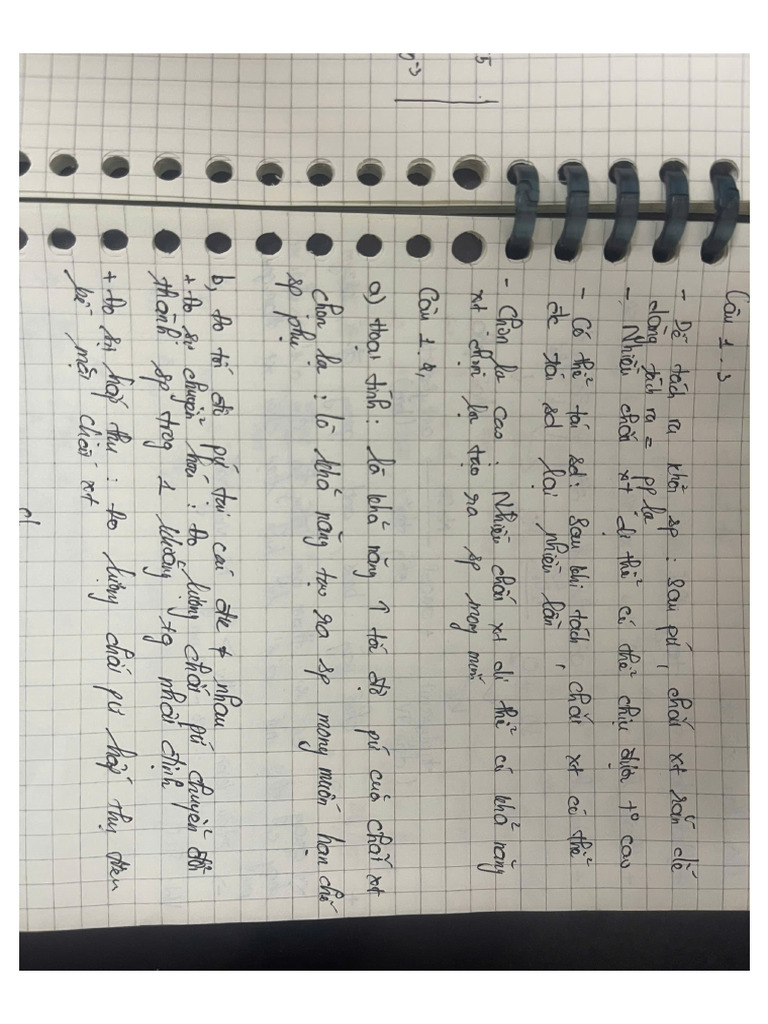 Câu 1.3
- Dễ tách ra khỏi sp : sau pứ, chất xt rắn dễ
dàng tách ra = pp lọc
- Nhiều chất xt dị thể có thể chịu được t° cao
- Có thể tái sd : sau khi tách, chất xt có thể
đc tái sd lại nhiều lần,
- Chọn lọc cao : Nhiều chất xt dị thể có khả năng
xt chọn lọc tạo ra sp mong muốn
Câu 1.4,
a) Hoạt tính : là khả năng ↑ tốc độ pứ của chất xt
Chọn lọc : là khả năng tạo ra sp mong muốn hạn chế
sp phụ
b, Đo tốc độ pứ tại các đk ≠ nhau
+ Đo sự chuyển hóa : Đo lượng chất pứ chuyển đổi
thành sp trog 1 khoảng tg nhất định
+ Đo sự hấp thu : Đo lượng chất pư hấp thụ trên
bề mặt chất xt